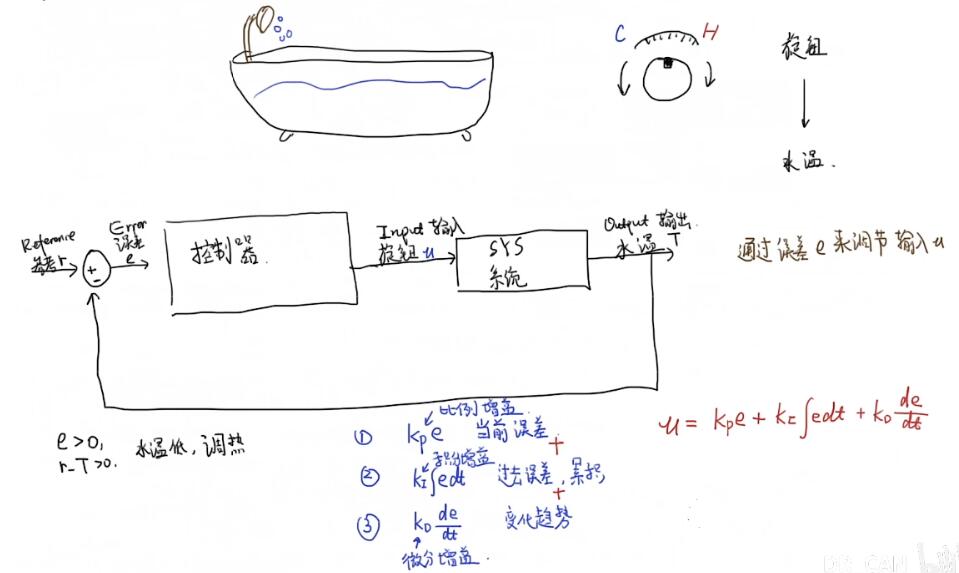 C H
旋钮
水温.
Reference
参考 r
+
-
Error
误差
e
控制器.
Input 输入
旋钮 u
SYS
系统
Output 输出.
水温 T
通过误差 e 来调节输入 u
e>0,
r-T>0.
水温低,调热
比例增益
① kₚe 当前误差
+
积分增益
② k_I∫edt 过去误差,累积
+
③ k_D de/dt 变化趋势
微分增益.
u = kₚe + k_I∫edt + k_D de/dt
DR_CAN